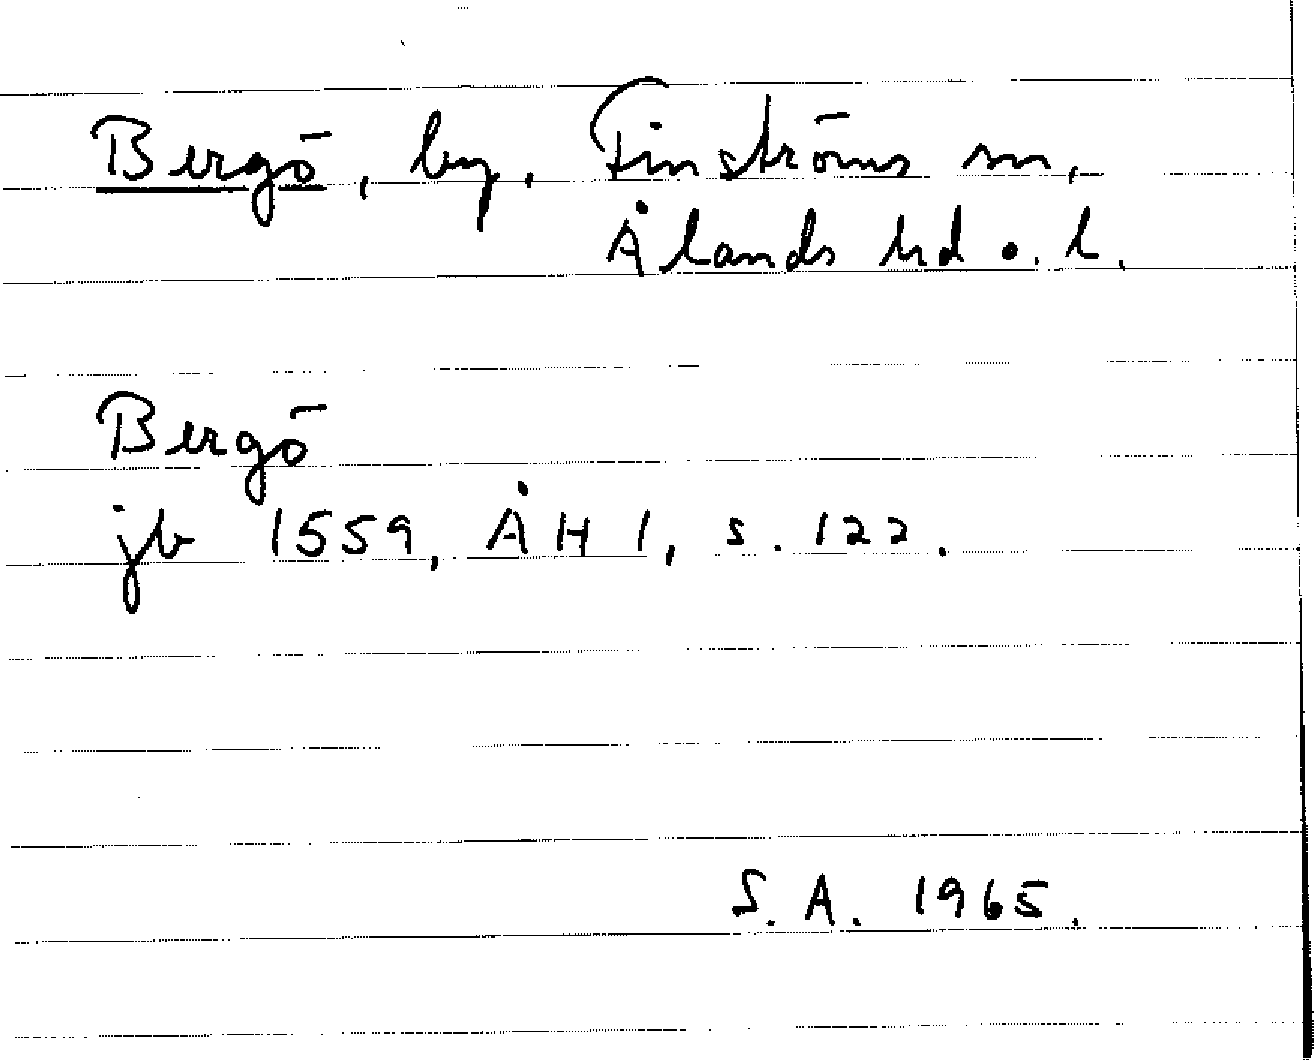 Bergö, by, Finströms sn,
Ålands hd o. l.
Bergö
jb 1559, ÅH 1, s. 122.
S. A. 1965.